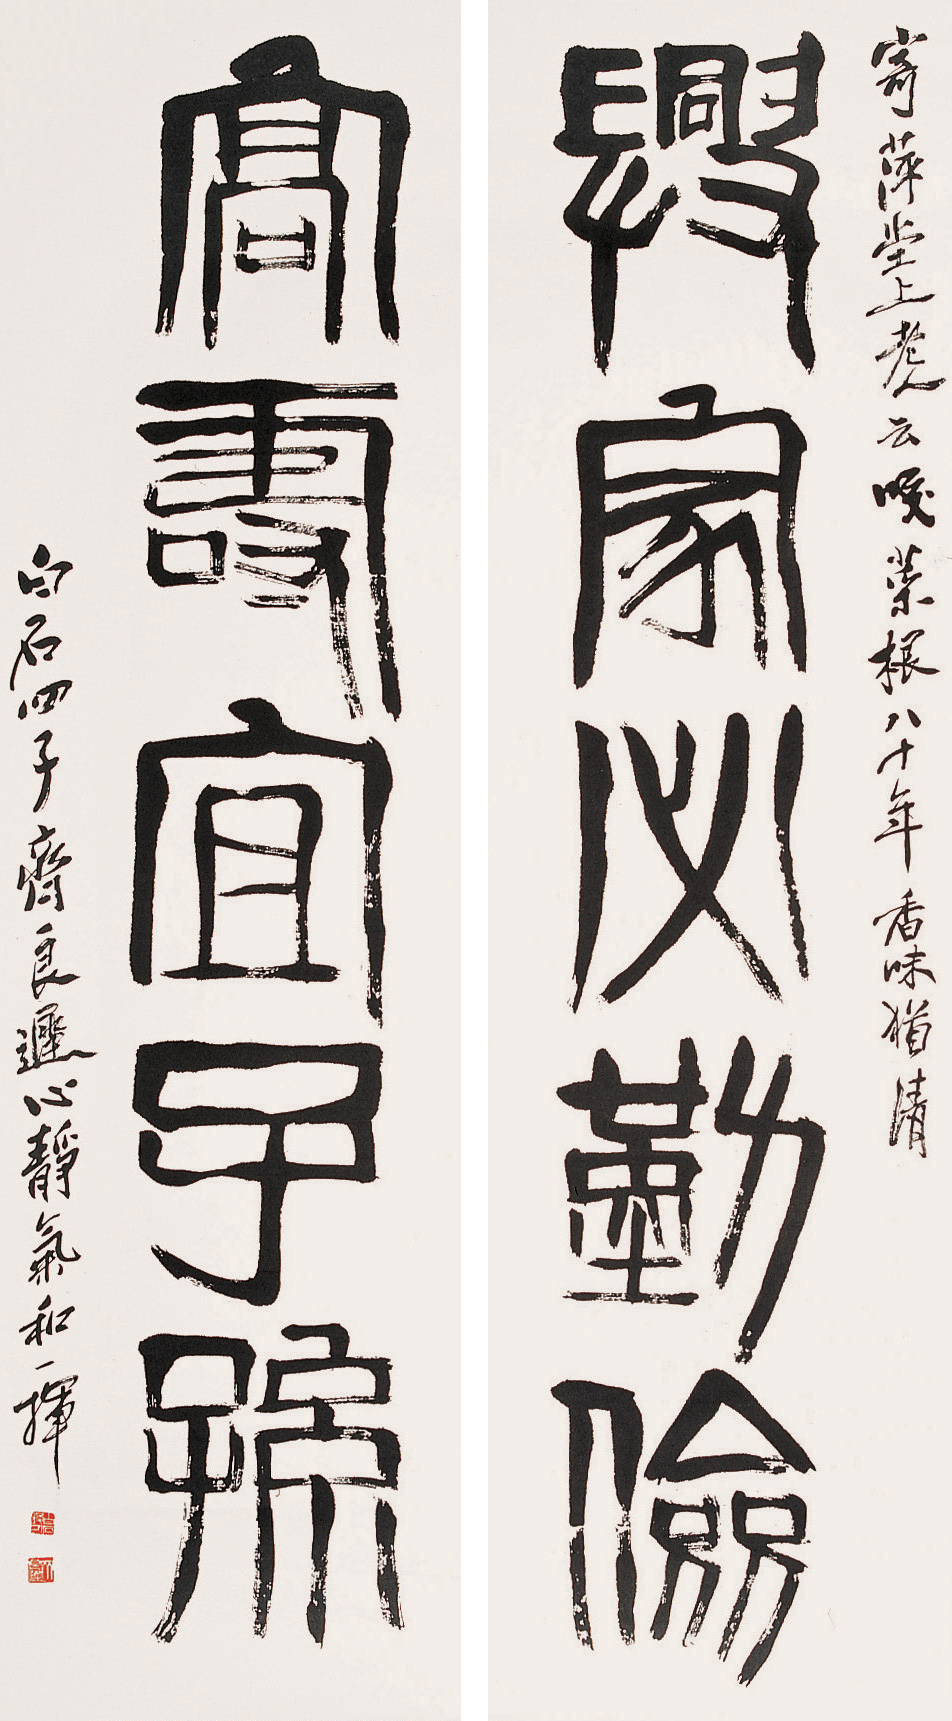 寄萍堂上老人云咬菜根八十年香味猶清
興家必勤儉
高壽宜子孫
白石四子齊良遲心靜氣和一揮